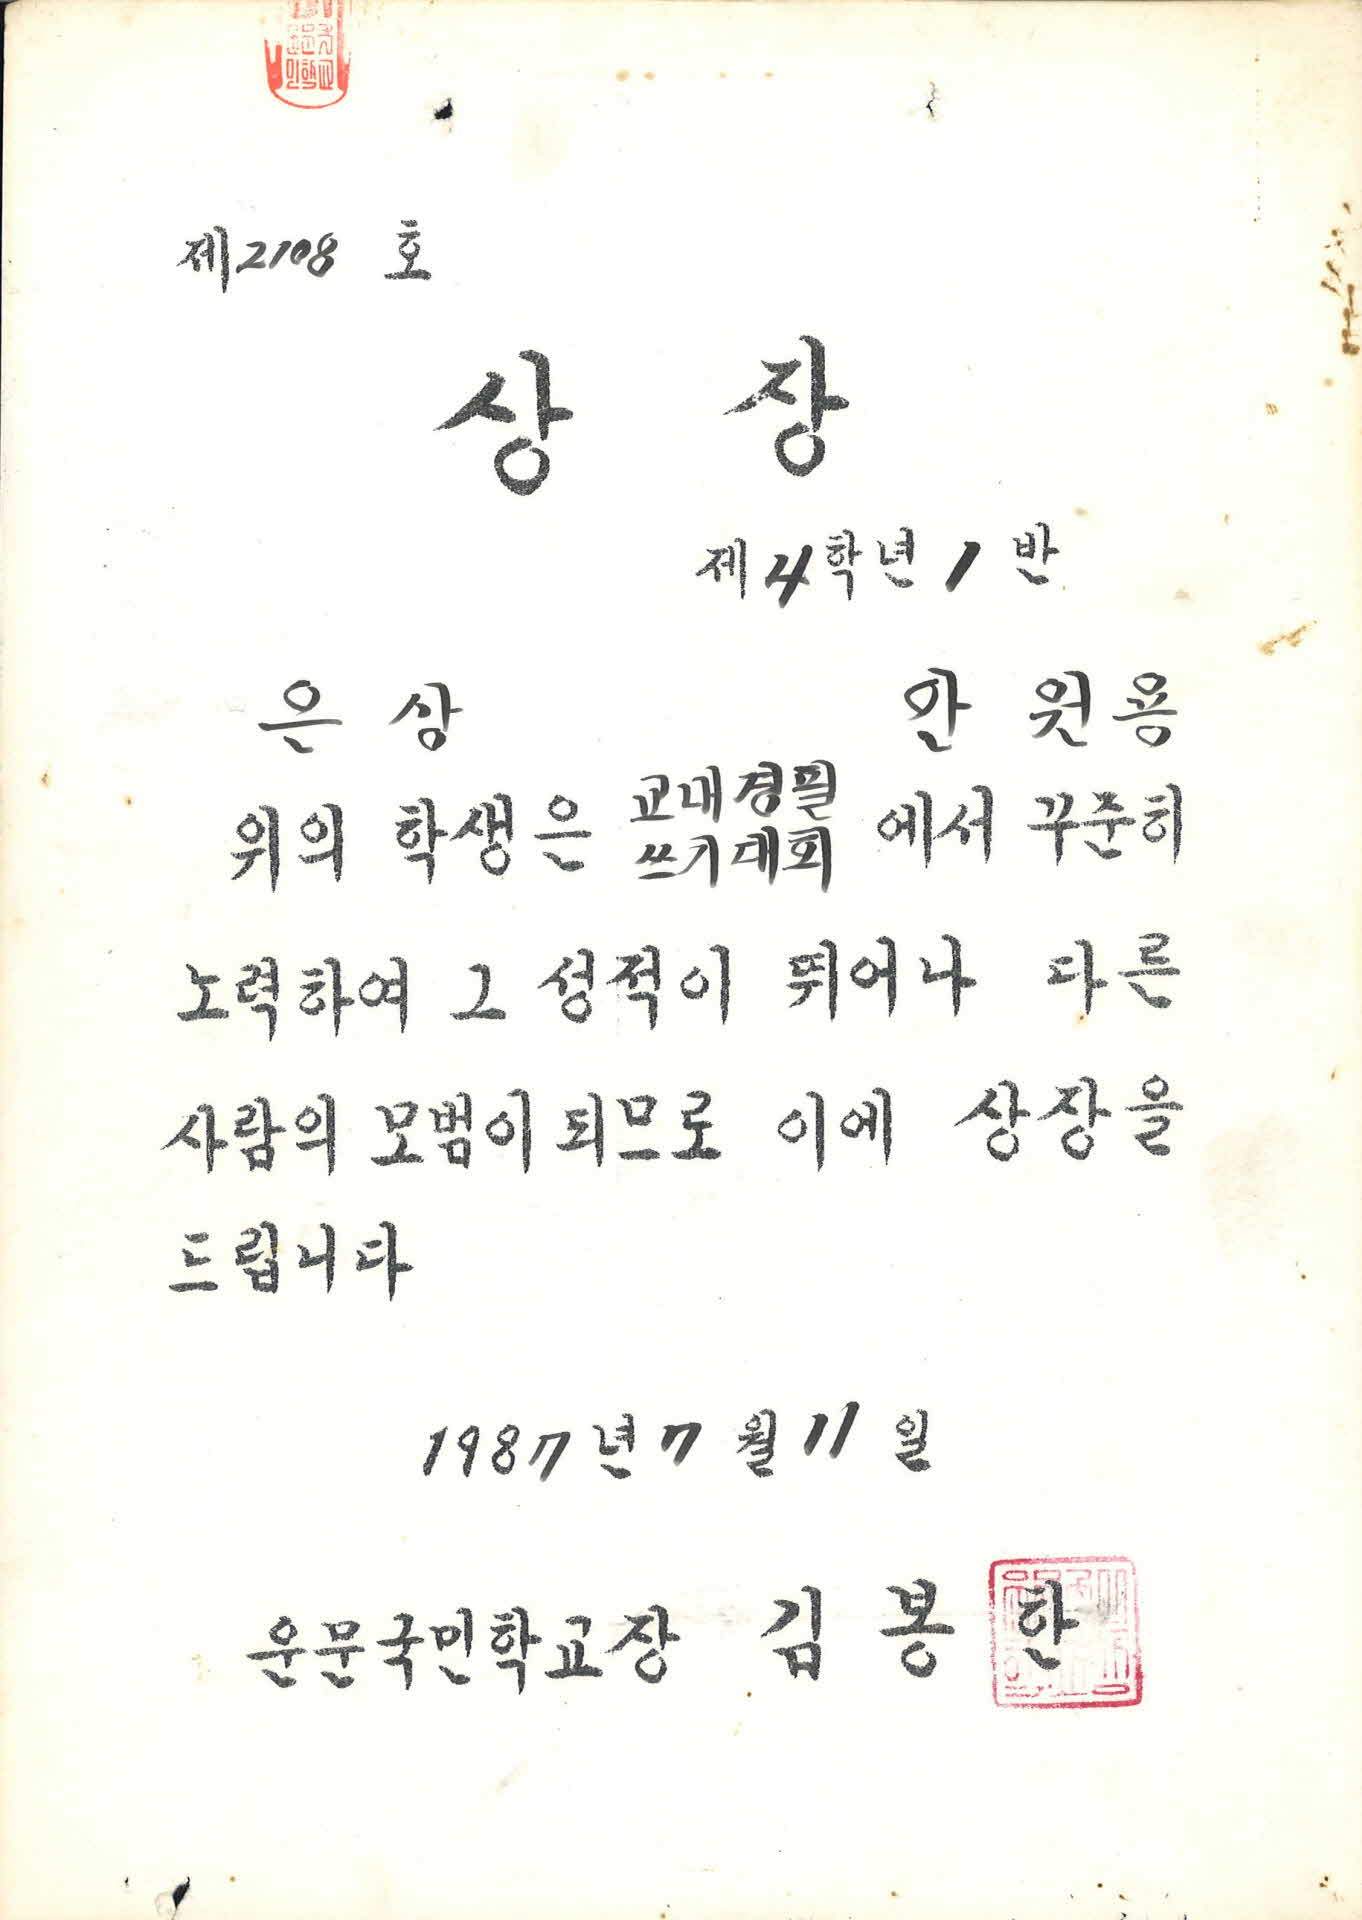 제2108 호
상 장
제4학년 1 반
은 상 안 원 용
위의 학생은 교내경필
쓰기대회 에서 꾸준히
노력하여 그 성적이 뛰어나 다른
사람의 모범이 되므로 이에 상장을
드립니다
1987년 7 월 11 일
운문국민학교장 김 봉 한